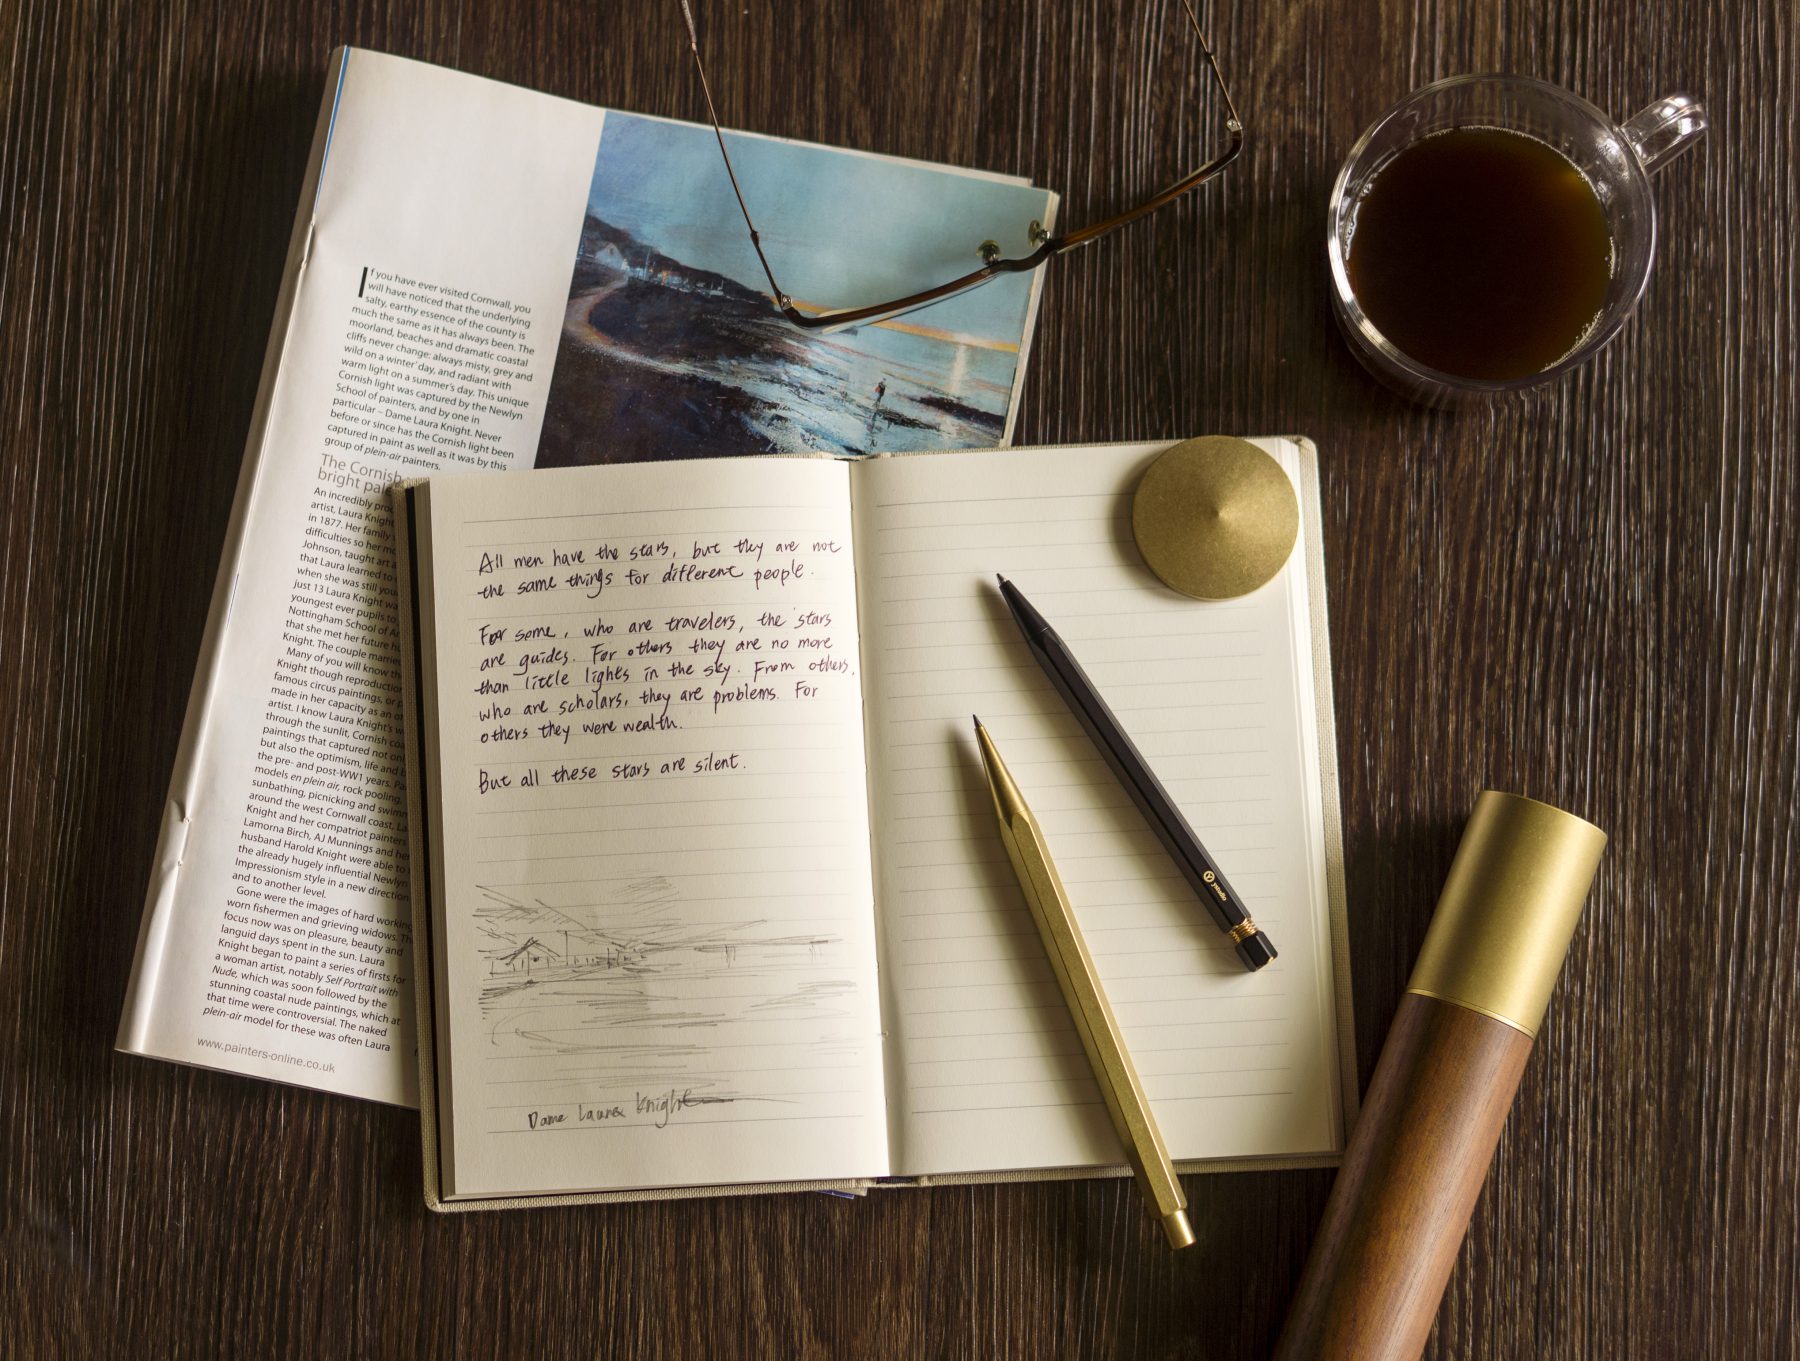 If you have ever visited Cornwall, you
will have noticed that the underlying
salty, earthy essence of the county is
much the same as it has always been. The
moorland, beaches and dramatic coastal
cliffs never change: always misty, grey and
wild on a winter' day, and radiant with
warm light on a summer's day. This unique
Cornish light was captured by the Newlyn
School of painters, and by one in
particular – Dame Laura Knight. Never
before or since has the Cornish light been
captured in paint as well as it was by this
group of plein-air painters.
The Cornish
bright
An incredibly
artist, Laura Knight
in 1877. Her family
difficulties so her
Johnson, taught art
that Laura learned to
when she was still
just 13 Laura Knight
youngest ever pupils
Nottingham School of
that she met her future
Knight. The couple married
Many of you will know
Knight though
famous circus paintings, or
made in her capacity as an
artist. I know Laura Knight's
through the sunlit, Cornish
paintings that captured not
but also the optimism, life and
the pre- and post-WW1 years.
models en plein air, rock pooling,
sunbathing, picnicking and
around the west Cornwall coast.
Knight and her compatriot painters
Lamorna Birch, AJ Munnings and her
husband Harold Knight were able to
the already hugely influential Newlyn
Impressionism style in a new direction
and to another level.
Gone were the images of hard working
worn fishermen and grieving widows.
focus now was on pleasure, beauty and
languid days spent in the sun. Laura
Knight began to paint a series of firsts for
a woman artist, notably Self Portrait with
Nude, which was soon followed by the
stunning coastal nude paintings, which at
that time were controversial. The naked
plein-air model for these was often Laura
www.painters-online.co.uk
All men have the stars, but they are not
the same things for different people.
For some, who are travelers, the stars
are guides. For others they are no more
than little lights in the sky. From others,
who are scholars, they are problems. For
others they were wealth.
But all these stars are silent.
Dame Laurex Knight
ystudio